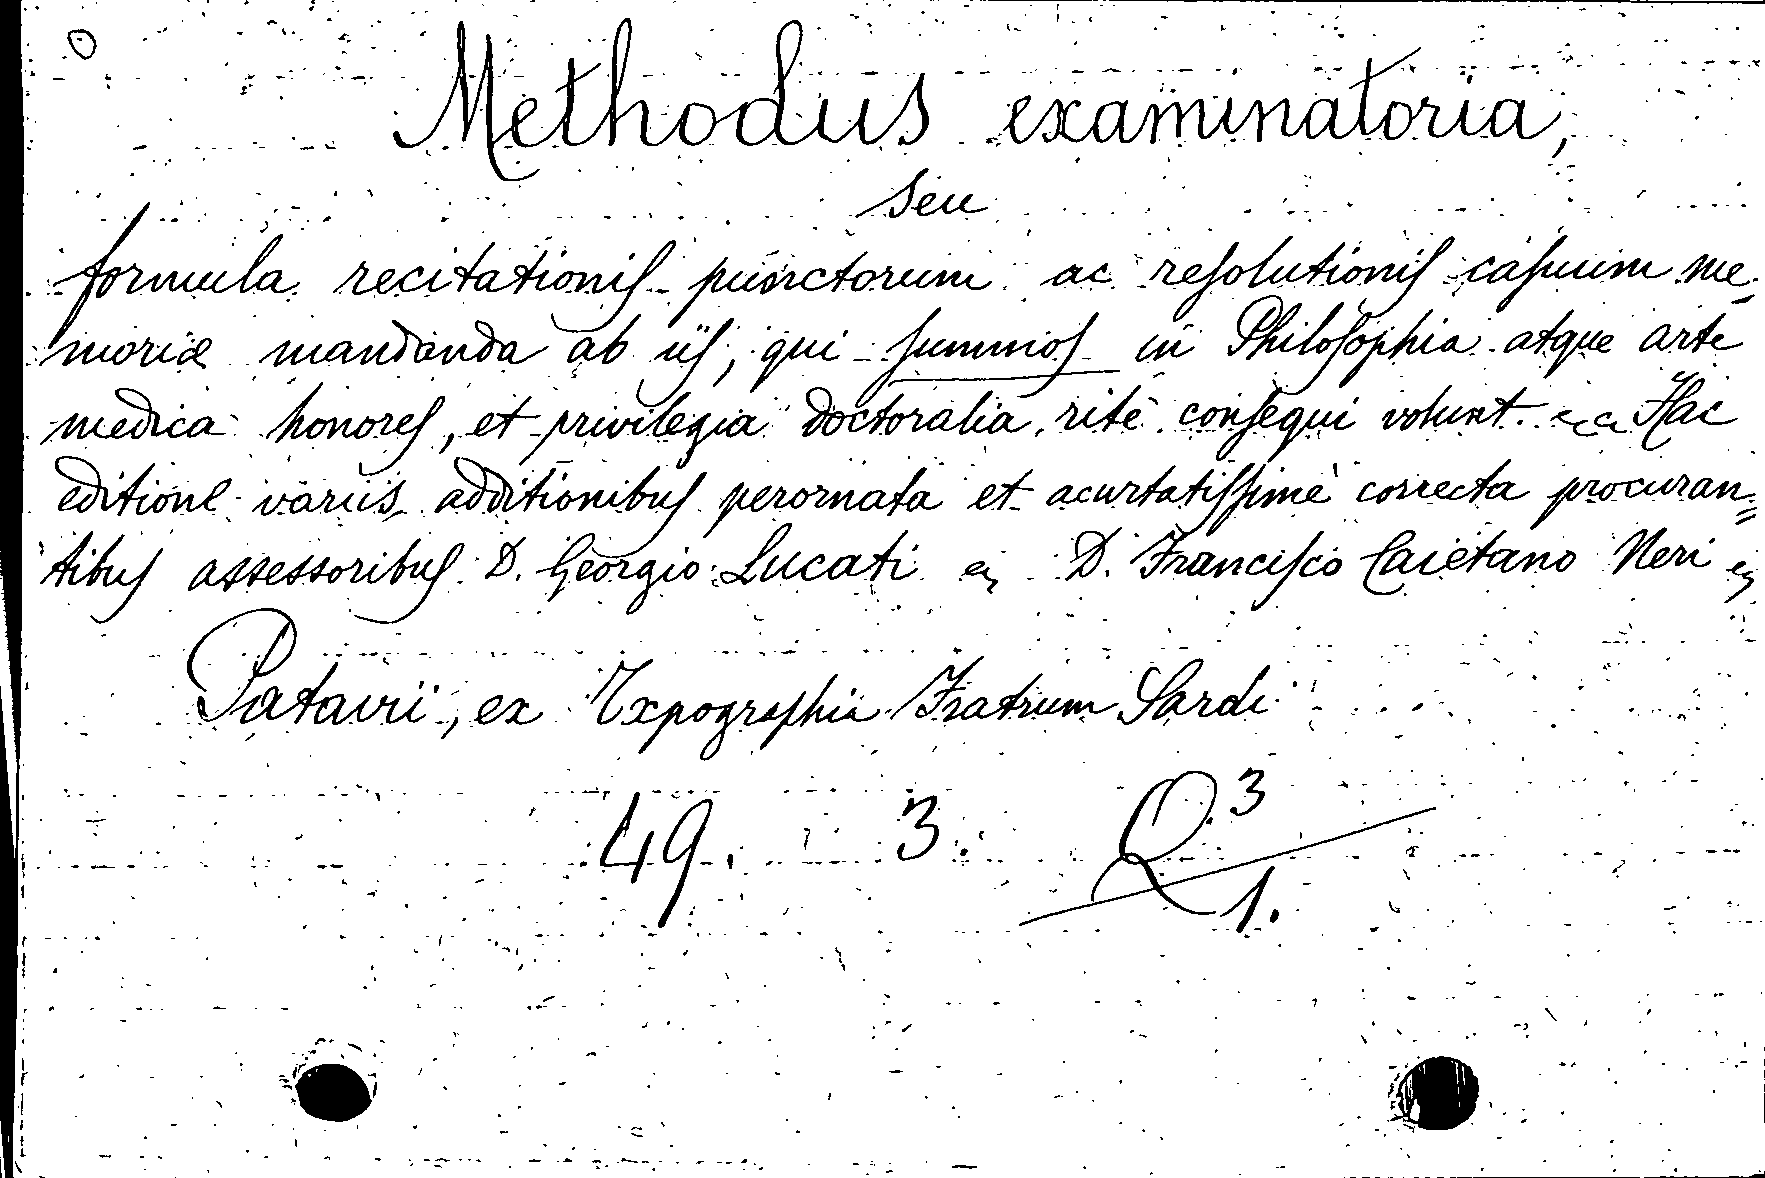 Methodus examinatoria,
seu
formula recitationis punctorum ac resolutionis casuum me-
moriæ mandanda ab iis, qui summos in Philosophia atque arte
medica honores, et privilegia doctoralia rite consequi volunt. Hac
editione variis additionibus perornata et acurtatissimè correcta procuran=
tibus assessoribus D. Georgio Lucati D. Francisco Caietano Neri
Patavii, ex Typographia Fratrum Sardi
49. 3. Q.3
1.